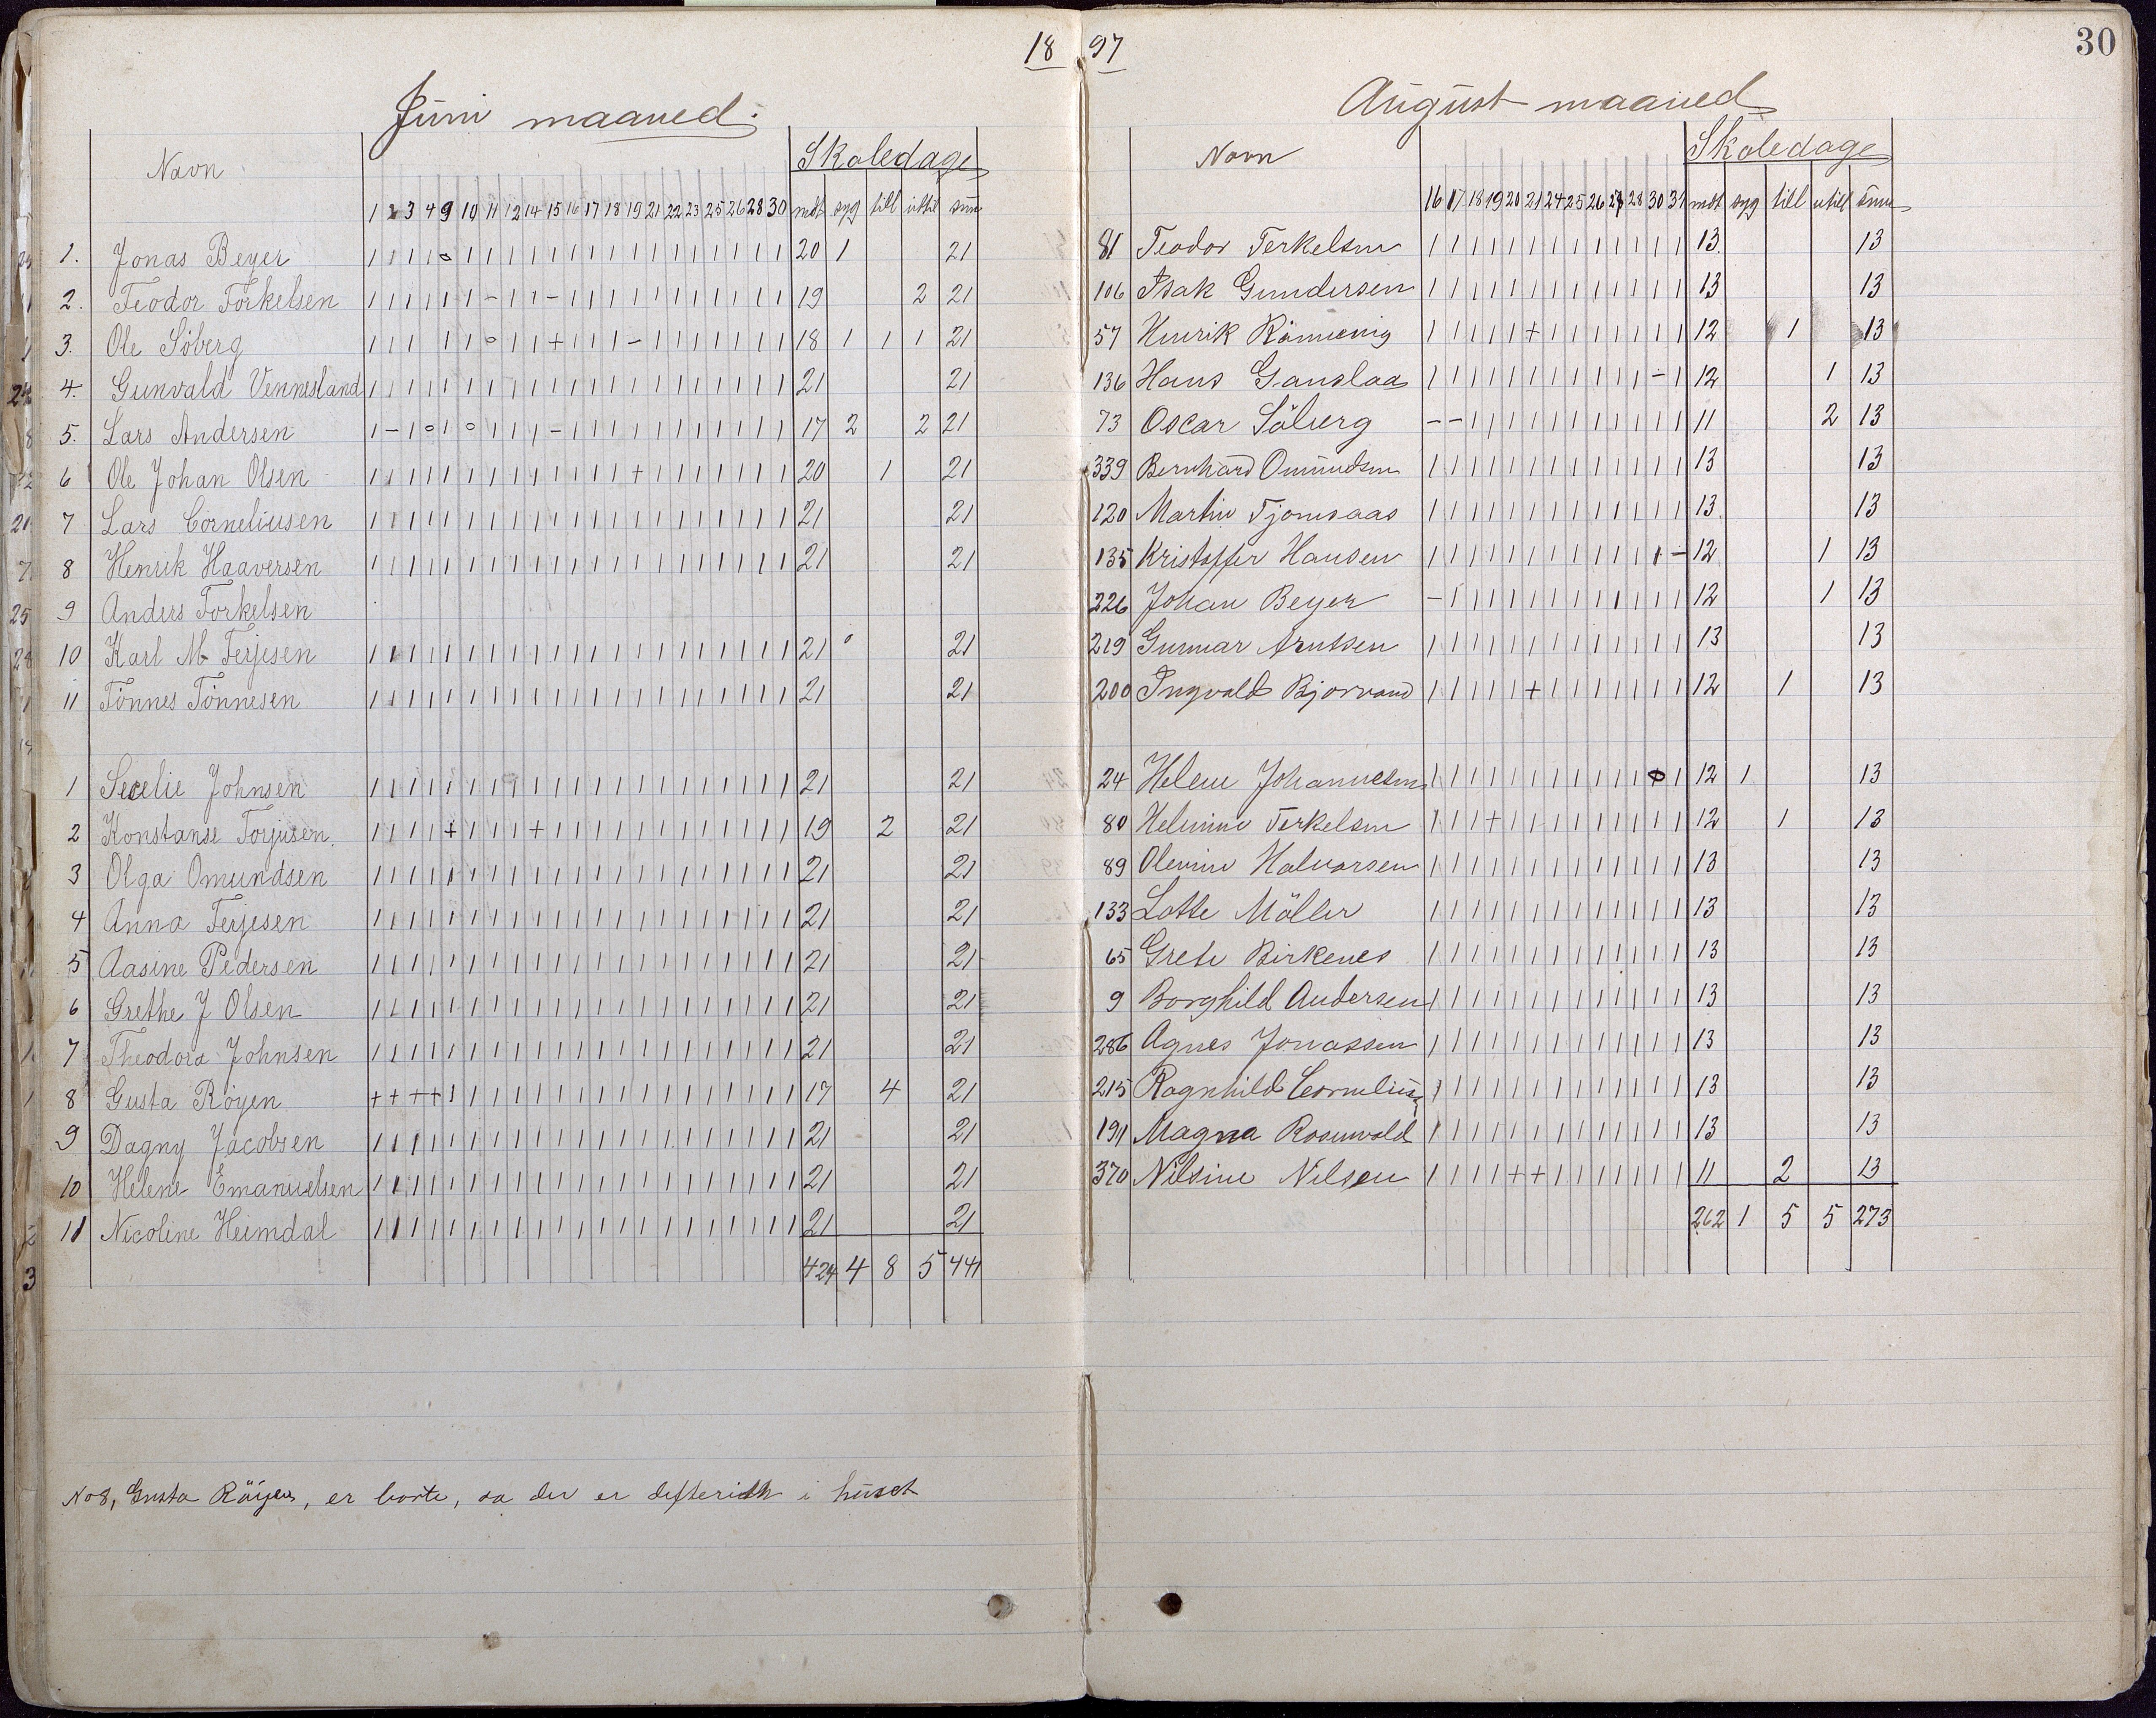 18 97
30
Juni maaned.
Navn Skoledage
1 2 3 4 9 10 11 12 14 15 16 17 18 19 21 22 23 25 26 28 30 mdt syg till utill sum
1. Jonas Beyer 1 1 1 1 o 1 1 1 1 1 1 1 1 1 1 1 1 1 1 1 1 20 1 21
2. Teodor Torkelsen 1 1 1 1 1 1 - 1 1 - 1 1 1 1 1 1 1 1 1 1 1 19 2 21
3. Ole Söberg 1 1 1 1 1 o 1 1 + 1 1 1 - 1 1 1 1 1 1 1 1 18 1 1 1 21
4. Gunvald Vennesland 1 1 1 1 1 1 1 1 1 1 1 1 1 1 1 1 1 1 1 1 1 21 21
5. Lars Andersen 1 - 1 o 1 o 1 1 1 - 1 1 1 1 1 1 1 1 1 1 1 17 2 2 21
6 Ole Johan Olsen 1 1 1 1 1 1 1 1 1 1 1 1 1 + 1 1 1 1 1 1 1 20 1 21
7 Lars Cörneliusen 1 1 1 1 1 1 1 1 1 1 1 1 1 1 1 1 1 1 1 1 1 21 21
8 Henrik Haaversen 1 1 1 1 1 1 1 1 1 1 1 1 1 1 1 1 1 1 1 1 1 21 21
9 Anders Torkelsen
10 Karl M Terjesen 1 1 1 1 1 1 1 1 1 1 1 1 1 1 1 1 1 1 1 1 1 21 21
11 Tönnes Tönnesen 1 1 1 1 1 1 1 1 1 1 1 1 1 1 1 1 1 1 1 1 1 21 21
1 Secelie Johnsen 1 1 1 1 1 1 1 1 1 1 1 1 1 1 1 1 1 1 1 1 1 21 21
2 Konstanse Torjusen 1 1 1 1 + 1 1 1 + 1 1 1 1 1 1 1 1 1 1 1 1 19 2 21
3 Olga Omundsen 1 1 1 1 1 1 1 1 1 1 1 1 1 1 1 1 1 1 1 1 1 21 21
4 Anna Terjesen 1 1 1 1 1 1 1 1 1 1 1 1 1 1 1 1 1 1 1 1 1 21 21
5 Aasine Pedersen 1 1 1 1 1 1 1 1 1 1 1 1 1 1 1 1 1 1 1 1 1 21 21
6 Grethe J Olsen 1 1 1 1 1 1 1 1 1 1 1 1 1 1 1 1 1 1 1 1 1 21 21
7 Theodora Johnsen 1 1 1 1 1 1 1 1 1 1 1 1 1 1 1 1 1 1 1 1 1 21 21
8 Gusta Röyen + + + + 1 1 1 1 1 1 1 1 1 1 1 1 1 1 1 1 1 17 4 21
9 Dagny Jacobsen 1 1 1 1 1 1 1 1 1 1 1 1 1 1 1 1 1 1 1 1 1 21 21
10 Helene Emanuelsen 1 1 1 1 1 1 1 1 1 1 1 1 1 1 1 1 1 1 1 1 1 21 21
11 Nicoline Heimdal 1 1 1 1 1 1 1 1 1 1 1 1 1 1 1 1 1 1 1 1 1 21 21
424 4 8 5 441
No 8, Gusta Röijen, er borte, da der er defterith i huset
August maaned
Navn Skoledage
16 17 18 19 20 21 24 25 26 27 28 30 31 mdt syg till utill sum
81 Teodor Terkelsen 1 1 1 1 1 1 1 1 1 1 1 1 1 13 13
106 Isak Gundersen 1 1 1 1 1 1 1 1 1 1 1 1 1 13 13
57 Henrik 1 1 1 1 1 + 1 1 1 1 1 1 1 12 1 13
136 Hans Ganslaa 1 1 1 1 1 1 1 1 1 1 1 - 1 12 1 13
73 Oscar Söberg - - 1 1 1 1 1 1 1 1 1 1 1 11 2 13
339 Bernhard Omundsen 1 1 1 1 1 1 1 1 1 1 1 1 1 13 13
120 Martin Tjomsaas 1 1 1 1 1 1 1 1 1 1 1 1 1 13 13
135 Kristoffer Hansen 1 1 1 1 1 1 1 1 1 1 1 1 - 12 1 13
226 Johan Beyer - 1 1 1 1 1 1 1 1 1 1 1 1 12 1 13
219 Gunnar Arntsen 1 1 1 1 1 1 1 1 1 1 1 1 1 13 13
200 Ingvald Bjorvand 1 1 1 1 1 + 1 1 1 1 1 1 1 12 1 13
24 Helene Johannesen 1 1 1 1 1 1 1 1 1 1 1 o 1 12 1 13
80 Helmine Terkelsen 1 1 1 + 1 1 1 1 1 1 1 1 1 12 1 13
89 Olevine Halvorsen 1 1 1 1 1 1 1 1 1 1 1 1 1 13 13
133 Lotte Möller 1 1 1 1 1 1 1 1 1 1 1 1 1 13 13
65 Grete Birkenes 1 1 1 1 1 1 1 1 1 1 1 1 1 13 13
9 Borghild Andersen 1 1 1 1 1 1 1 1 1 1 1 1 1 13 13
286 Agnes Jonassen 1 1 1 1 1 1 1 1 1 1 1 1 1 13 13
215 Ragnhild Corneliusen 1 1 1 1 1 1 1 1 1 1 1 1 1 13 13
191 Magna Rosenvold 1 1 1 1 1 1 1 1 1 1 1 1 1 13 13
370 Nilsine Nilsen 1 1 1 1 + + 1 1 1 1 1 1 1 11 2 13
262 1 5 5 273